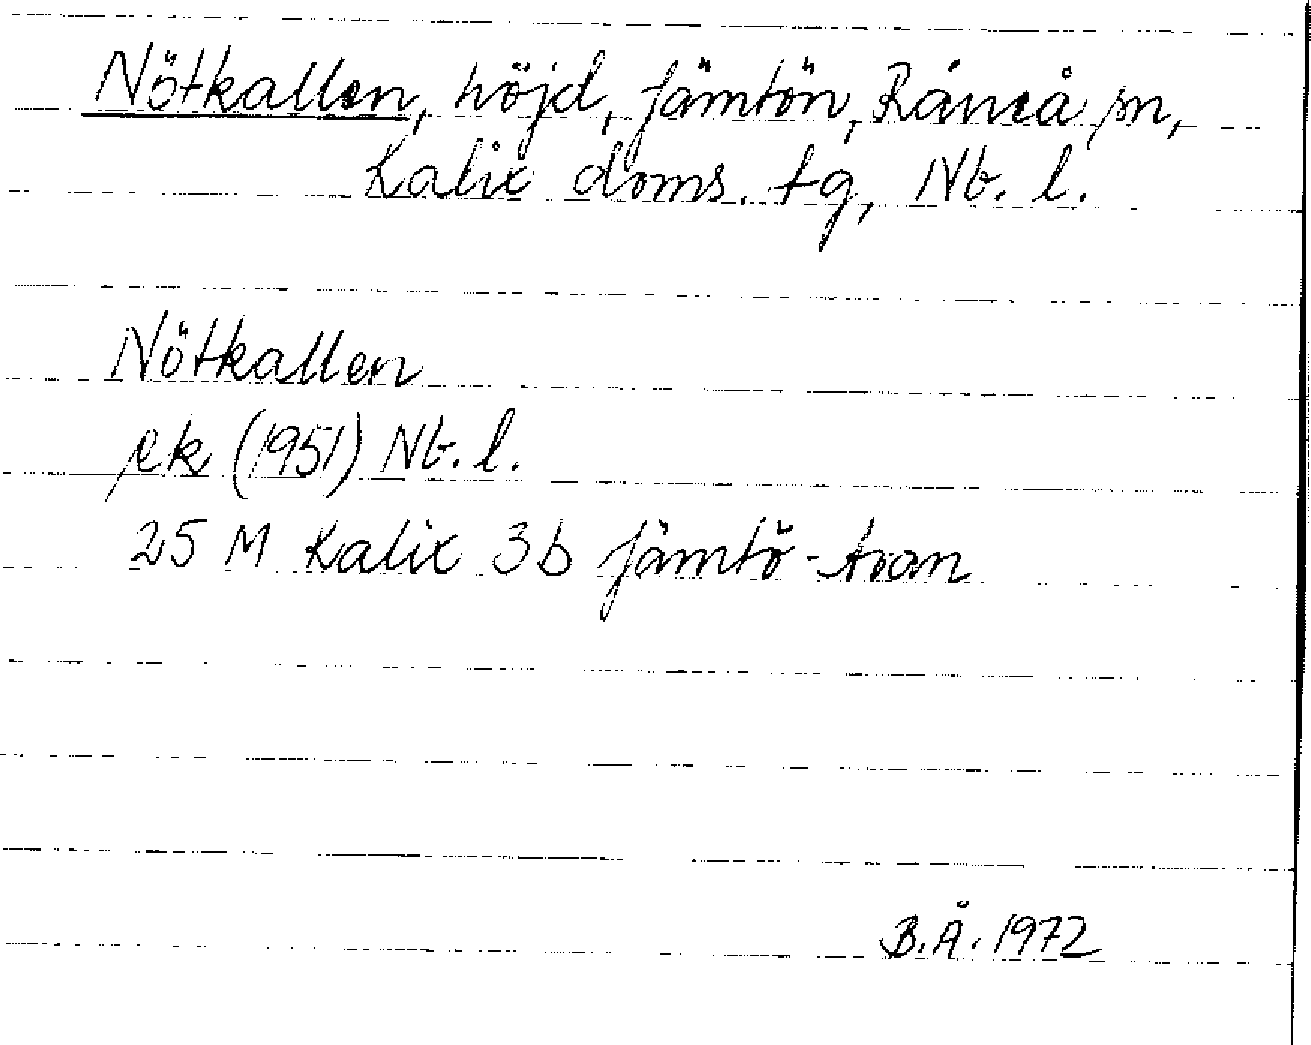 Nötkallen, höjd, Jämtön, Råneå sn,
Kalix doms. tg, Nb. l.
Nötkallen
ek (1951) Nb. l.
25 M Kalix 3b Jämtö-Avan
B.Å. 1972